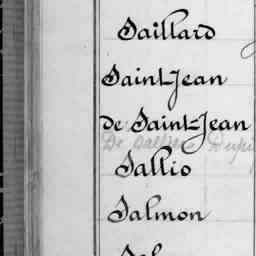 Saillard
Saint-Jean
de Saint-Jean
De Salles
Sallio
Salmon